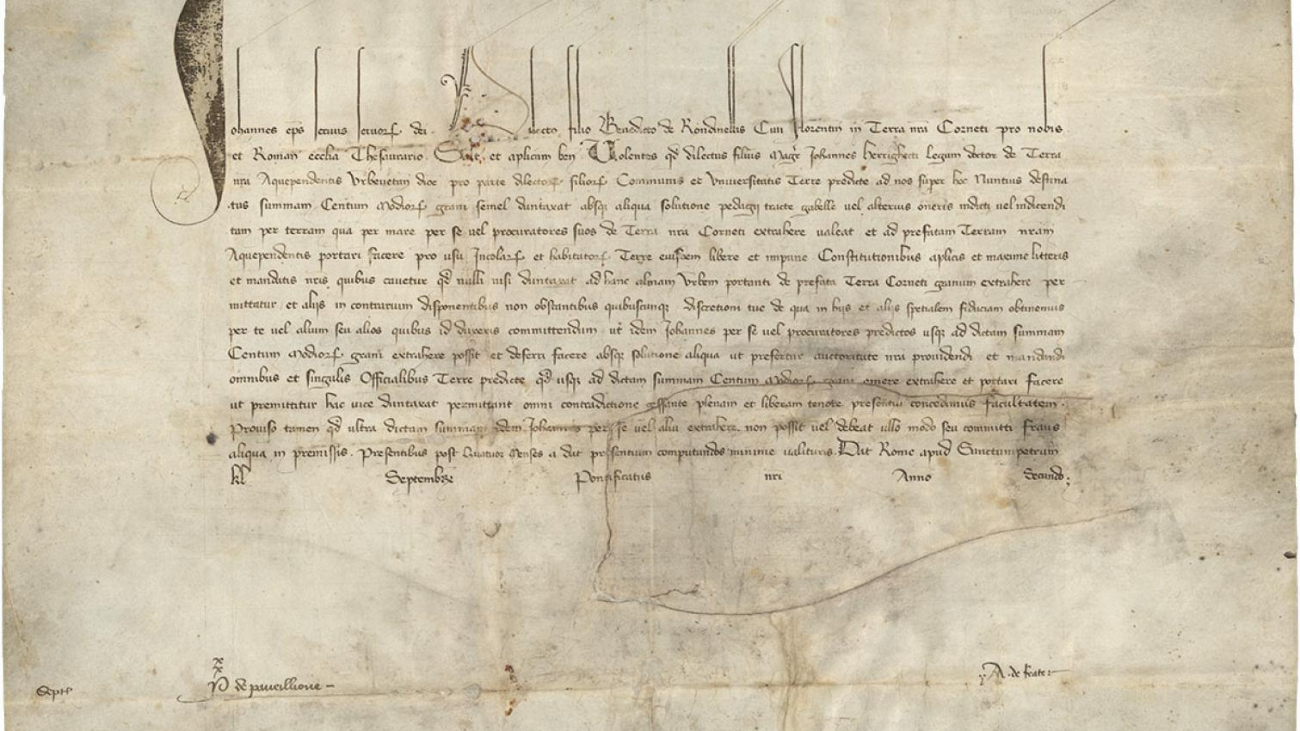 Johannes eps servus servorꝝ dei. Dilecto filio Benedicto de Rondinellis Civi Florentin in Terra nra Corneti pro nobis
et Roman ecclia Thesaurario Salt et aplicam ben Volentes qd dilectus filius Magr Johannes Herrighetti legum doctor de Terra
nra Aquependentis Urbevetan dioc pro parte dilectoꝝ filioꝝ Communis et Universitatis Terre predicte ad nos super hoc Nuntius destina
tus summam Centum Modioꝝ grani semel duntaxat absqz aliqua solutione pedagii tracte gabelle vel alterius oneris indicti vel indicendi
tam per terram qua per mare per se vel procuratores suos de Terra nra Corneti extrahere valeat et ad prefatam Terram nram
Aquependentis portari facere pro usu Incolaꝝ et habitatoꝝ Terre eiusdem libere et impune Constitutionibus aplicis et maxime litteris
et mandatis nris quibus cavetur qd nulli nisi duntaxat ad hanc almam Urbem portanti de prefata Terra Corneti granum extrahere per
mittatur et aliis in contrarium disponentibus non obstantibus quibuscunqz discretioni tue de qua in hiis et aliis spetialem fidutiam obtinemus
per te vel alium seu alios quibus id duxeris committendum ut idem Johannes per se vel procuratores predictos usqz ad dictam summam
Centum Modioꝝ grani extrahere possit et deferri facere absqz solutione aliqua ut prefertur auctoritate nra providendi et mandandi
omnibus et singulis Officialibus Terre predicte qd usqz ad dictam summam Centum Modioꝝ grani emere extrahere et portari facere
ut premittitur hac vice duntaxat permittant omni contradictione cessante plenam et liberam tenore presentiu concedimus facultatem.
Proviso tamen qd ultra dictam summam idem Johannes per se vel aliu extrahere non possit vel debeat ullo modo seu committi fraus
aliqua in premissis. Presentibus post Quatuor Menses a dat presentium computandos minime valituris. Dat Rome apud Sanctumpetrum
kl Septembr Pontificatus nri Anno Secundo;
xx
N de paveillione
A. de
Septr